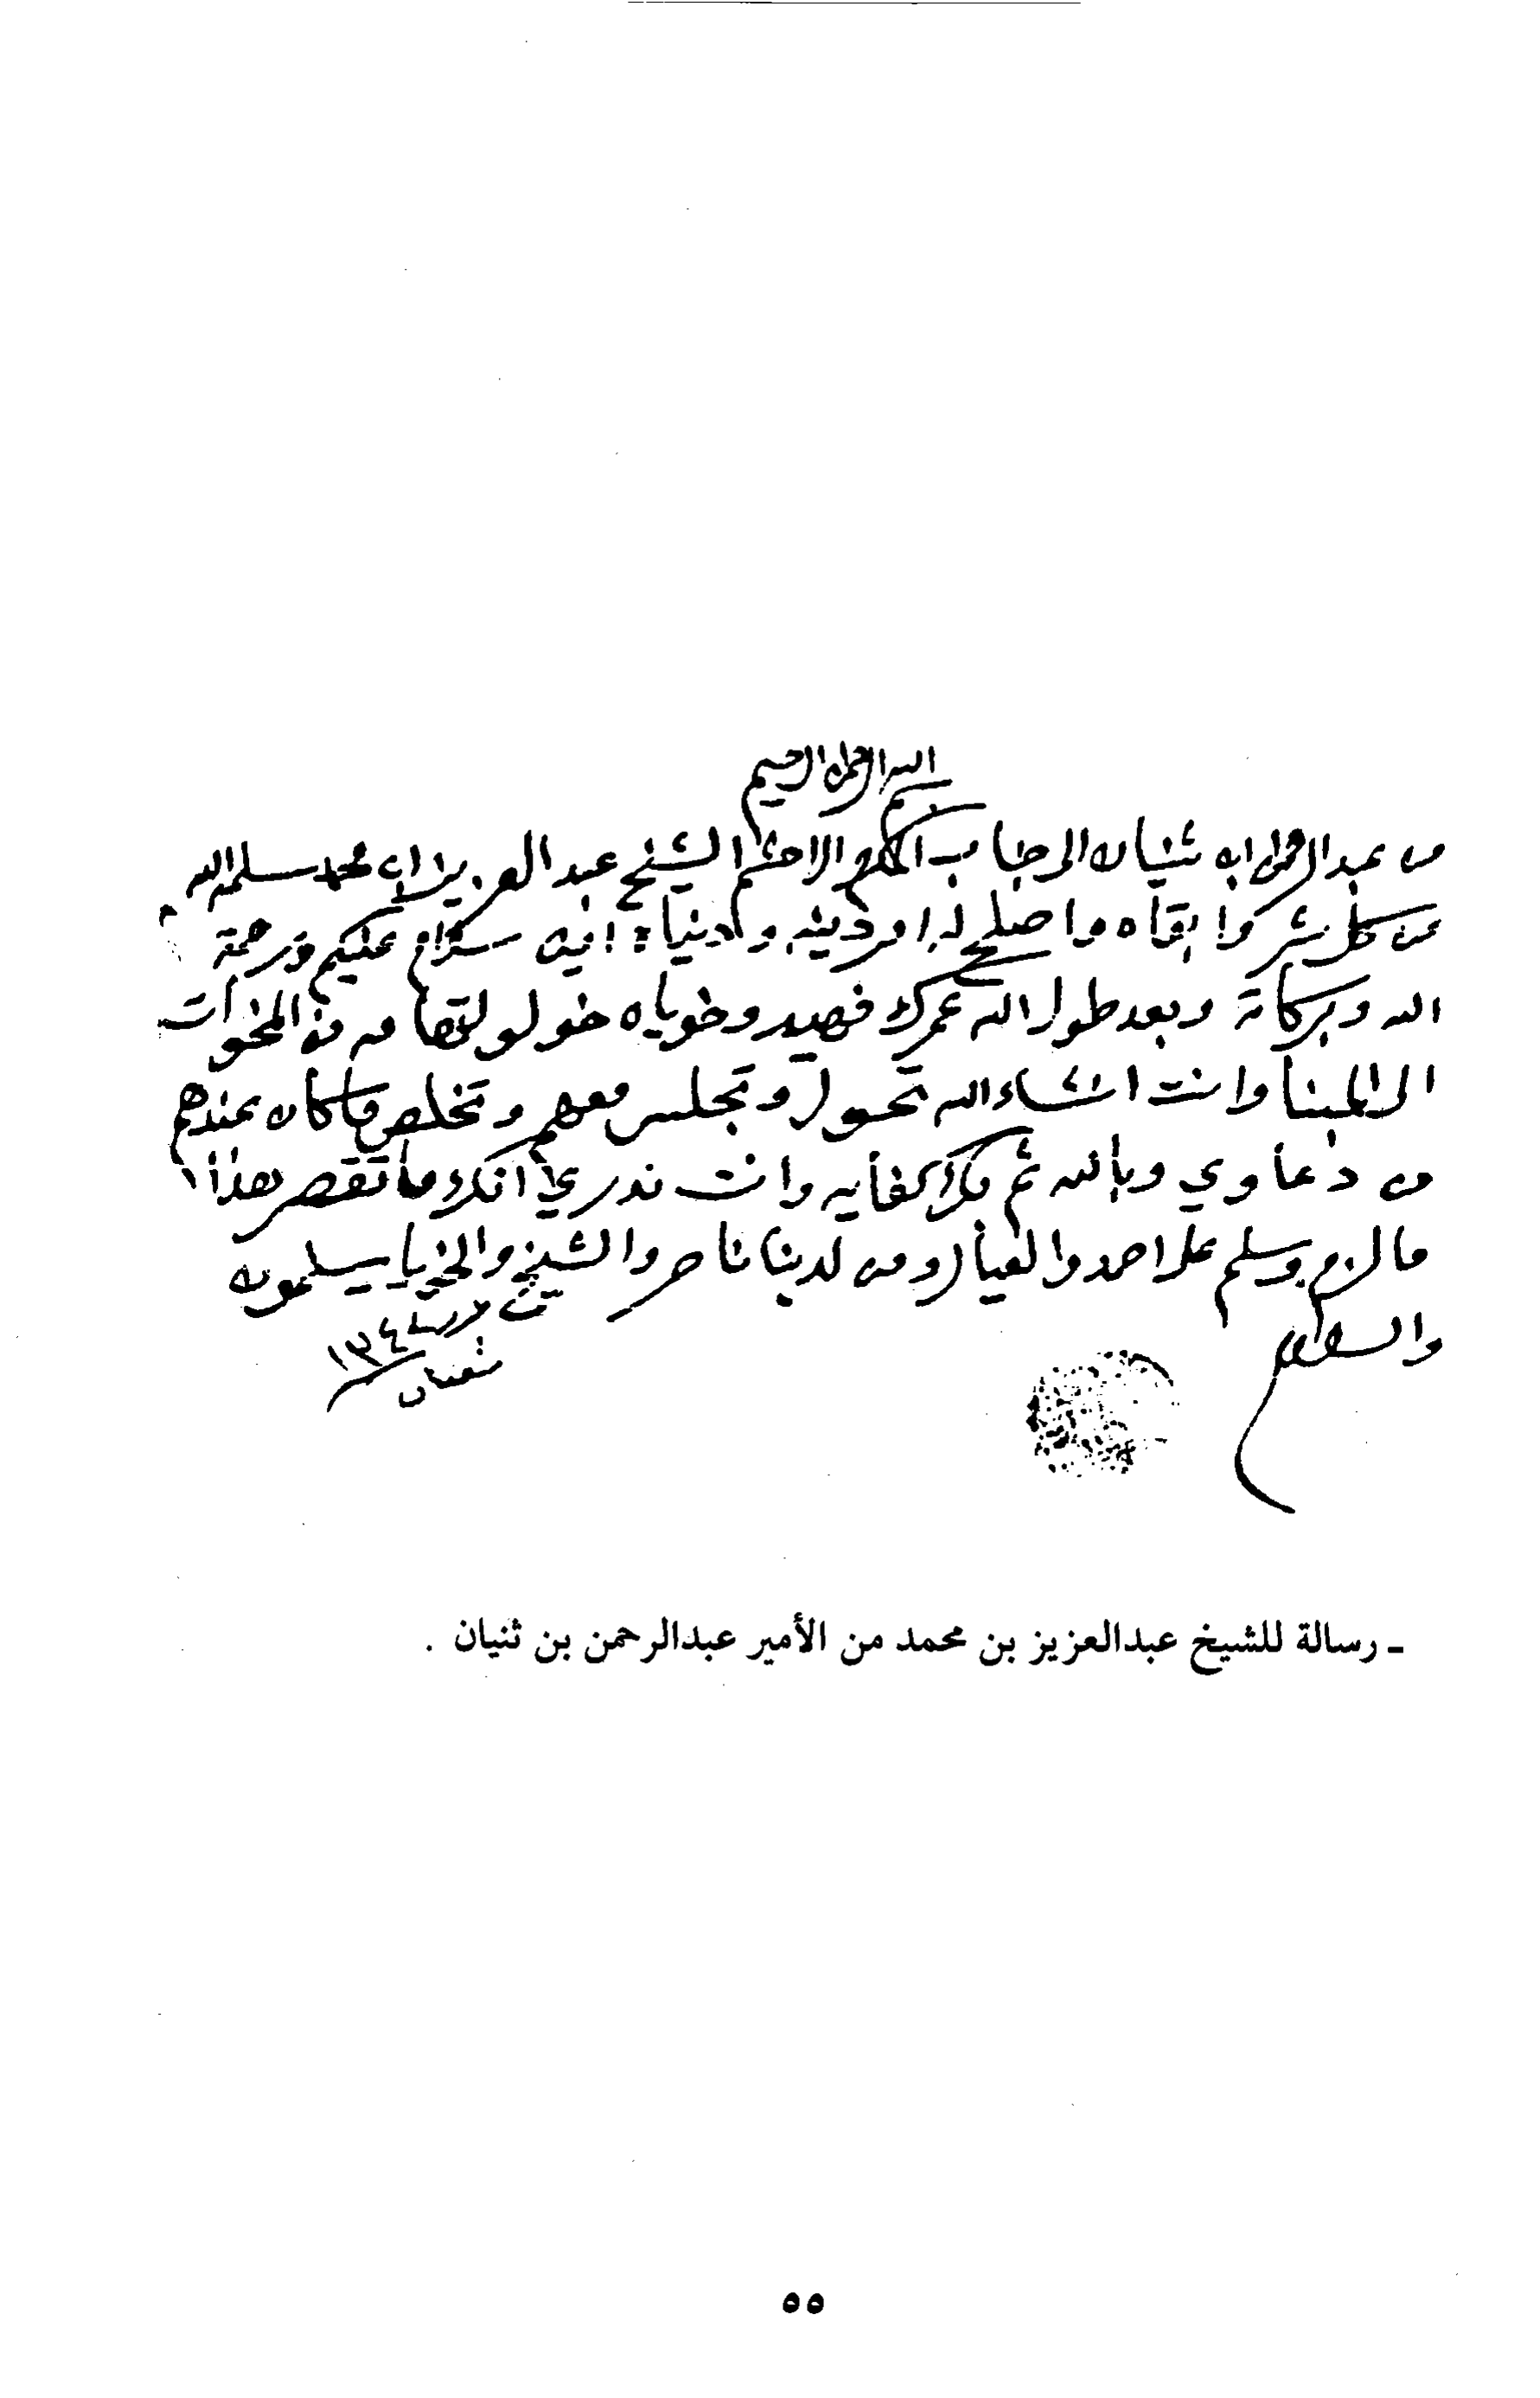 بسم الله الرحمن الرحيم
من عبد الرحمن ابن ثنيان الى جناب المكرم الاحشم الشيخ عبد العزيز ابن محمد سلمه الله
من كل شر وابقاه واصلح له امر دينه ودنياه امين سلام عليكم ورحمة
الله وبركاته وبعد طول الله عمرك فهيد وخوياه
الى المبنا وانت انشاء الله تحول وتجلس معهم وتخلص ما كان عندهم
من دعاوي وبالله ثم بك كفايه وانت تدري انك ما تقصر هذا
ما لزم وسلم على احمد والعيال ومن لدينا ناصر والشيخ والخويا يسلمون
والسلام
شعبان ١٣٤٤
ـ رسالة للشيخ عبدالعزيز بن محمد من الأمير عبدالرحمن بن ثنيان .
٥٥